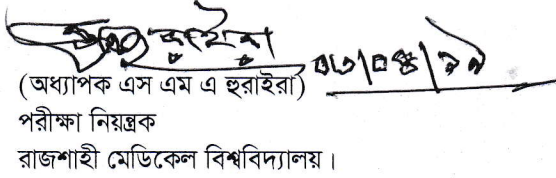 হুরাইরা ০৩|০৪|১৯
(অধ্যাপক এস এম এ হুরাইরা)
পরীক্ষা নিয়ন্ত্রক
রাজশাহী মেডিকেল বিশ্ববিদ্যালয়।